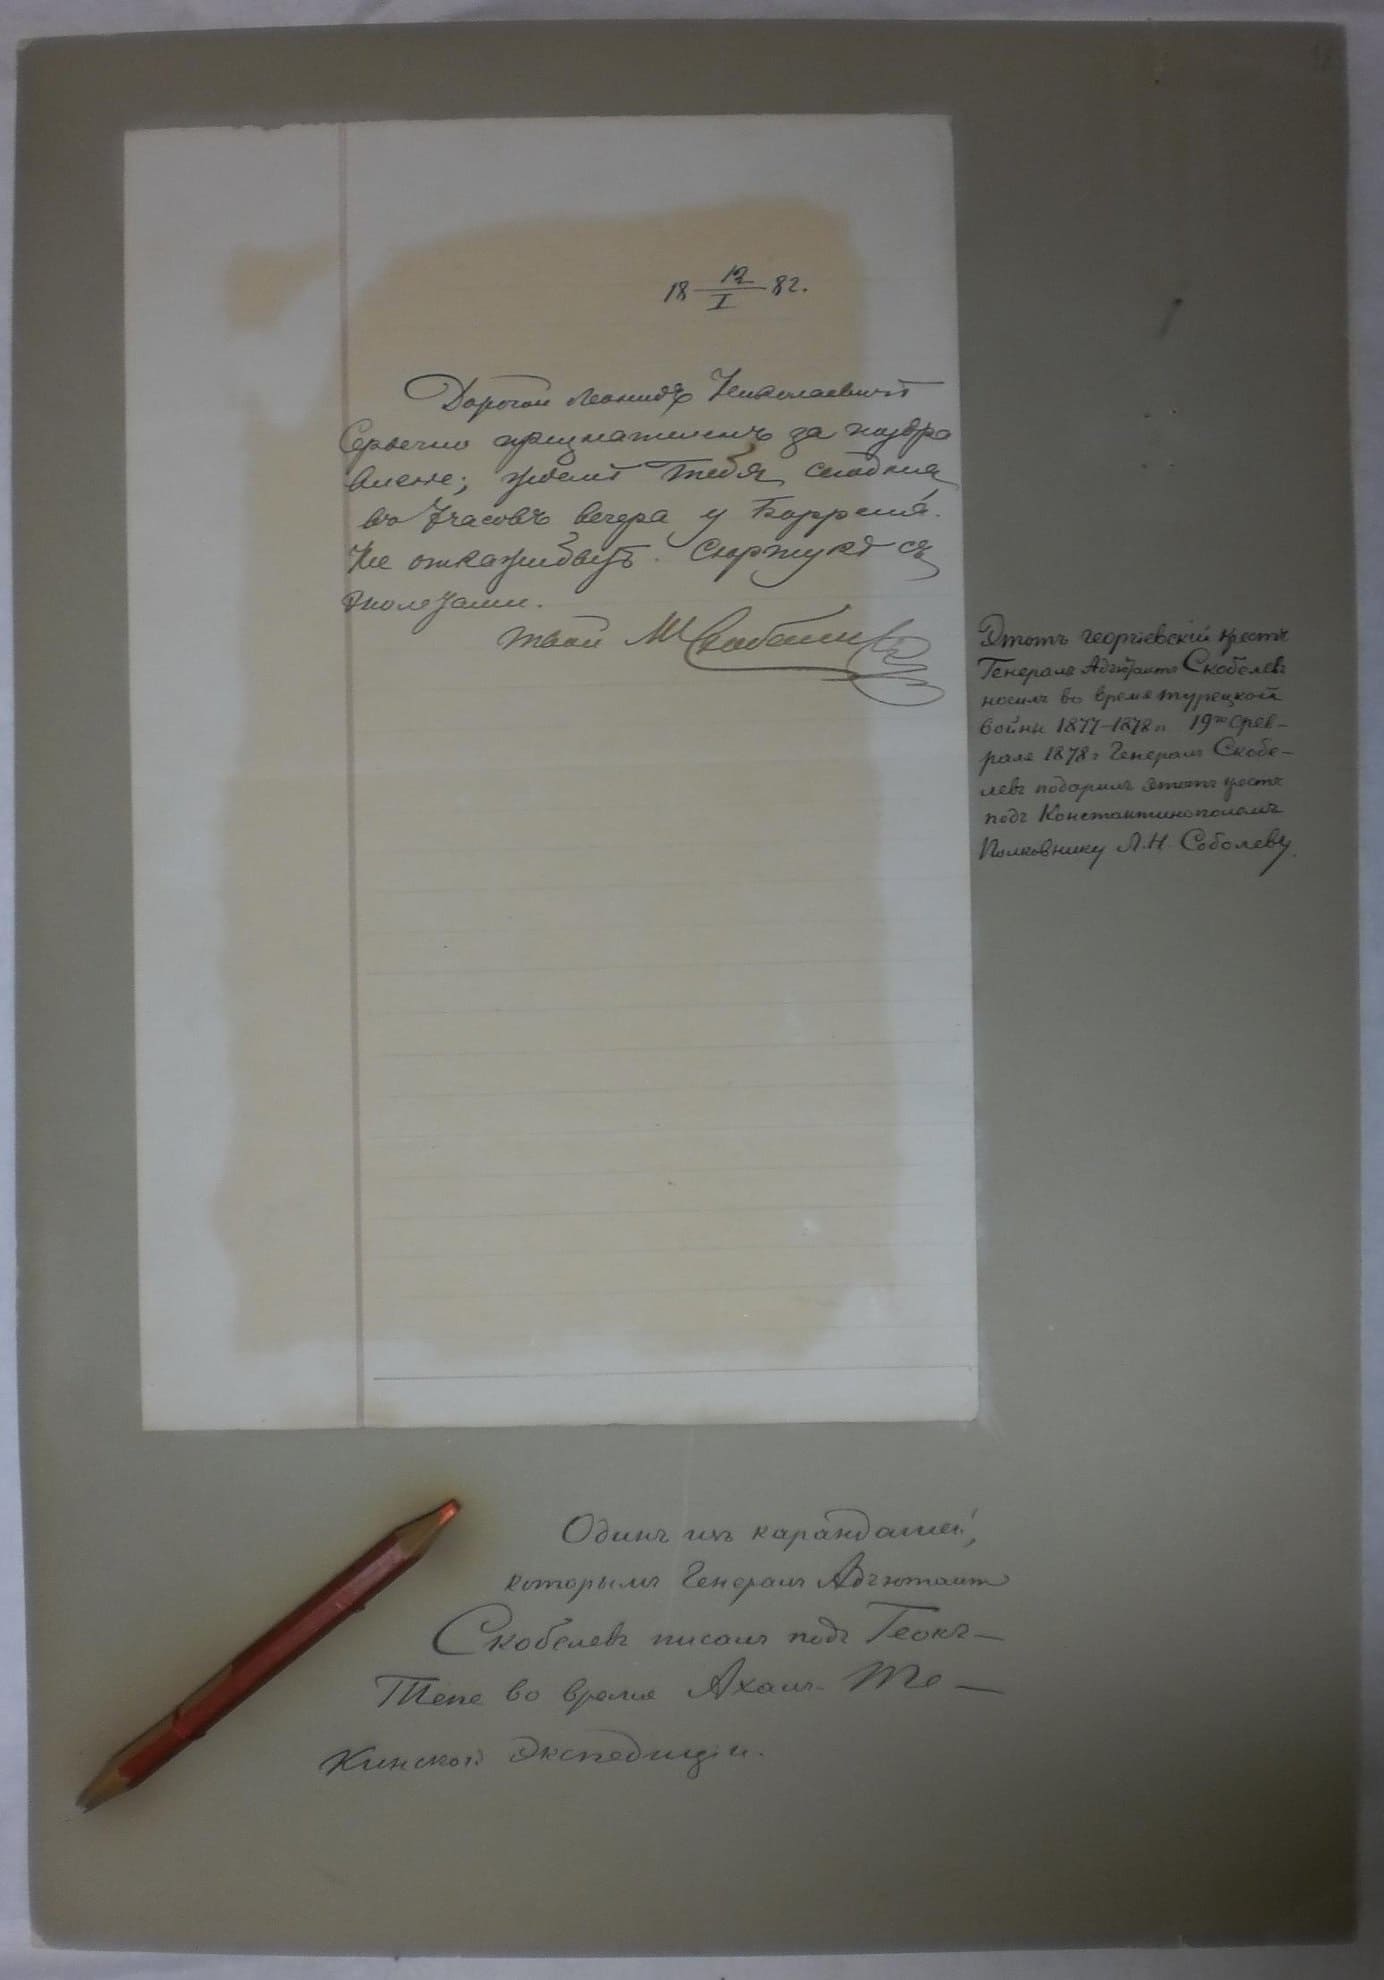 18 12/I 82.
Дорогой Леонидъ Николаевичъ
Сердечно признателенъ за поздра
вленіе; ждемъ тебя сегодня
въ 7 часовъ вечера у Борреля.
Не отказывай. Сюртукъ съ
эполетами.
Твой М Скобелевъ
Этотъ георгіевскій крестъ
Генералъ Адъютантъ Скобелевъ
носилъ во время турецкой
войны 1877–1878 г. 19го фев–
раля 1878 г Генералъ Скобе–
левъ подарилъ этотъ крестъ
подъ Константинополемъ
Полковнику Л. Н. Соболеву.
Одинъ изъ карандашей,
которымъ Генералъ Адъютантъ
Скобелевъ писалъ подъ Геокъ–
Тепе во время Ахалъ-Те–
Кинской Экспедиціи.